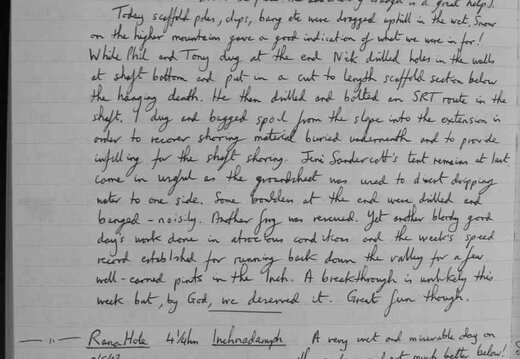 is a great help).
Today scaffold poles, clips, bang etc were dragged uphill in the wet. Snow
on the higher mountains gave a good indication of what we were in for!
While Phil and Tony dug at the end Nick drilled holes in the walls
at shaft bottom and put in a cut to length scaffold section below
the hanging death. He then drilled and bolted an SRT route in the
shaft. I dug and bagged spoil from the slope into the extension in
order to recover shoring material buried underneath and to provide
infilling for the shaft shoring. Jeni Sandercott's tent remains at last
came in useful as the groundsheet was used to divert dripping
water to one side. Some boulders at the end were drilled and
banged - noisily. Another frog was rescued. Yet another bloody good
day's work done in atrocious conditions and the week's speed
record established for running back down the valley for a few
well-earned pints in the Inch. A breakthrough is unlikely this
week but, by God, we deserved it. Great fun though.
— " — Rana Hole 4¼hrs Inchnadamph A very wet and miserable day on
much better below!